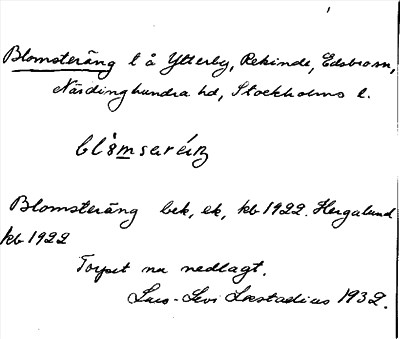 Blomsteräng t å Ytterby, Rekinde, Edsbro sn,
Närdinghundra hd, Stockholms l.
blòmsəréŋ
Blomsteräng bek, ek, kb 1922. Hergalund
kb 1922
Torpet nu nedlagt.
Lars-Levi Læstadius 1932.